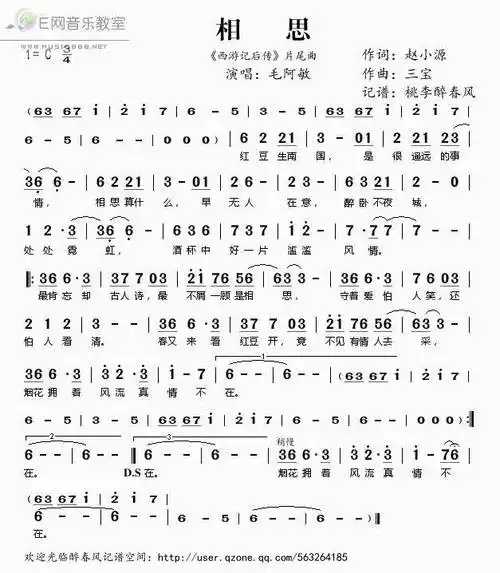 E网音乐教室
相 思
《西游记后传》片尾曲
作词：赵小源
1=C 3/4
演唱：毛阿敏
作曲：三宝
记谱：桃李醉春风
(63 67 i | 2 i 7 | 63 67 i | 2 i 7 | 6 - 5 | 6 - 5 |
6 - 5 | 6 - 5 | 6 - - | 000) | 6 2 21 | 3 - 01 | 6 2 21 | 2 3 |
红豆生南 国， 是 很 遥远的事
36 6 - | 6 2 21 | 3 - 01 | 2 3 6 | 7 - 6 | 6 2 21 | 2 - 0 |
情， 相思算什 么， 早 无人 在意， 醉卧不夜 城，
1 2 · 3 | 36 · 3 | 2 3 6 | 1 2 · 3 | 1 2 · | 7 · 7 7 | 7 - - |
处处霓 虹， 酒杯中 好一片 滥滥 风情。
36 6 · 3 | 36 6 · 3 | 37 7 03 | 21 76 56 | 63 3 | 36 6 · 3 | 37 7 03 |
最肯忘却 古人诗，最 不屑一顾是相 思， 守着爱怕 人笑，还
2 1 · 6 | 3 - - | 36 6 · 3 | 37 7 03 | 21 76 56 | 63 3 |
怕人看 清。 春又来看 红豆开，竟 不见有情人去 采，
36 6 · 3 | 3 2 · 3 | 1 - 76 | 6 - - | 6 - - | 63 67 i | 2 i 7 |
烟花拥着 风流真 情不 在。
63 67 i | 2 i 7 | 6 - 5 | 6 - 5 | 6 - 5 | 6 - - | 000) :|
稍慢
6 - - | 6 - - | 6 - - | 6 - - | 36 6 · 3 | 3 2 · 3 | 1 - 76 |
在。 D.S 在。 烟花拥着 风流真 情不
(63 67 i | 2 i 7 | 63 67 i | 2 i 7)
6 - - | 6 - - | 6 - - | 6 - - | 6 - 5 | 6 - 5 | 6 - - | 6 - - |
在。
欢迎光临醉春风记谱空间：http://user.qzone.qq.com/563264185